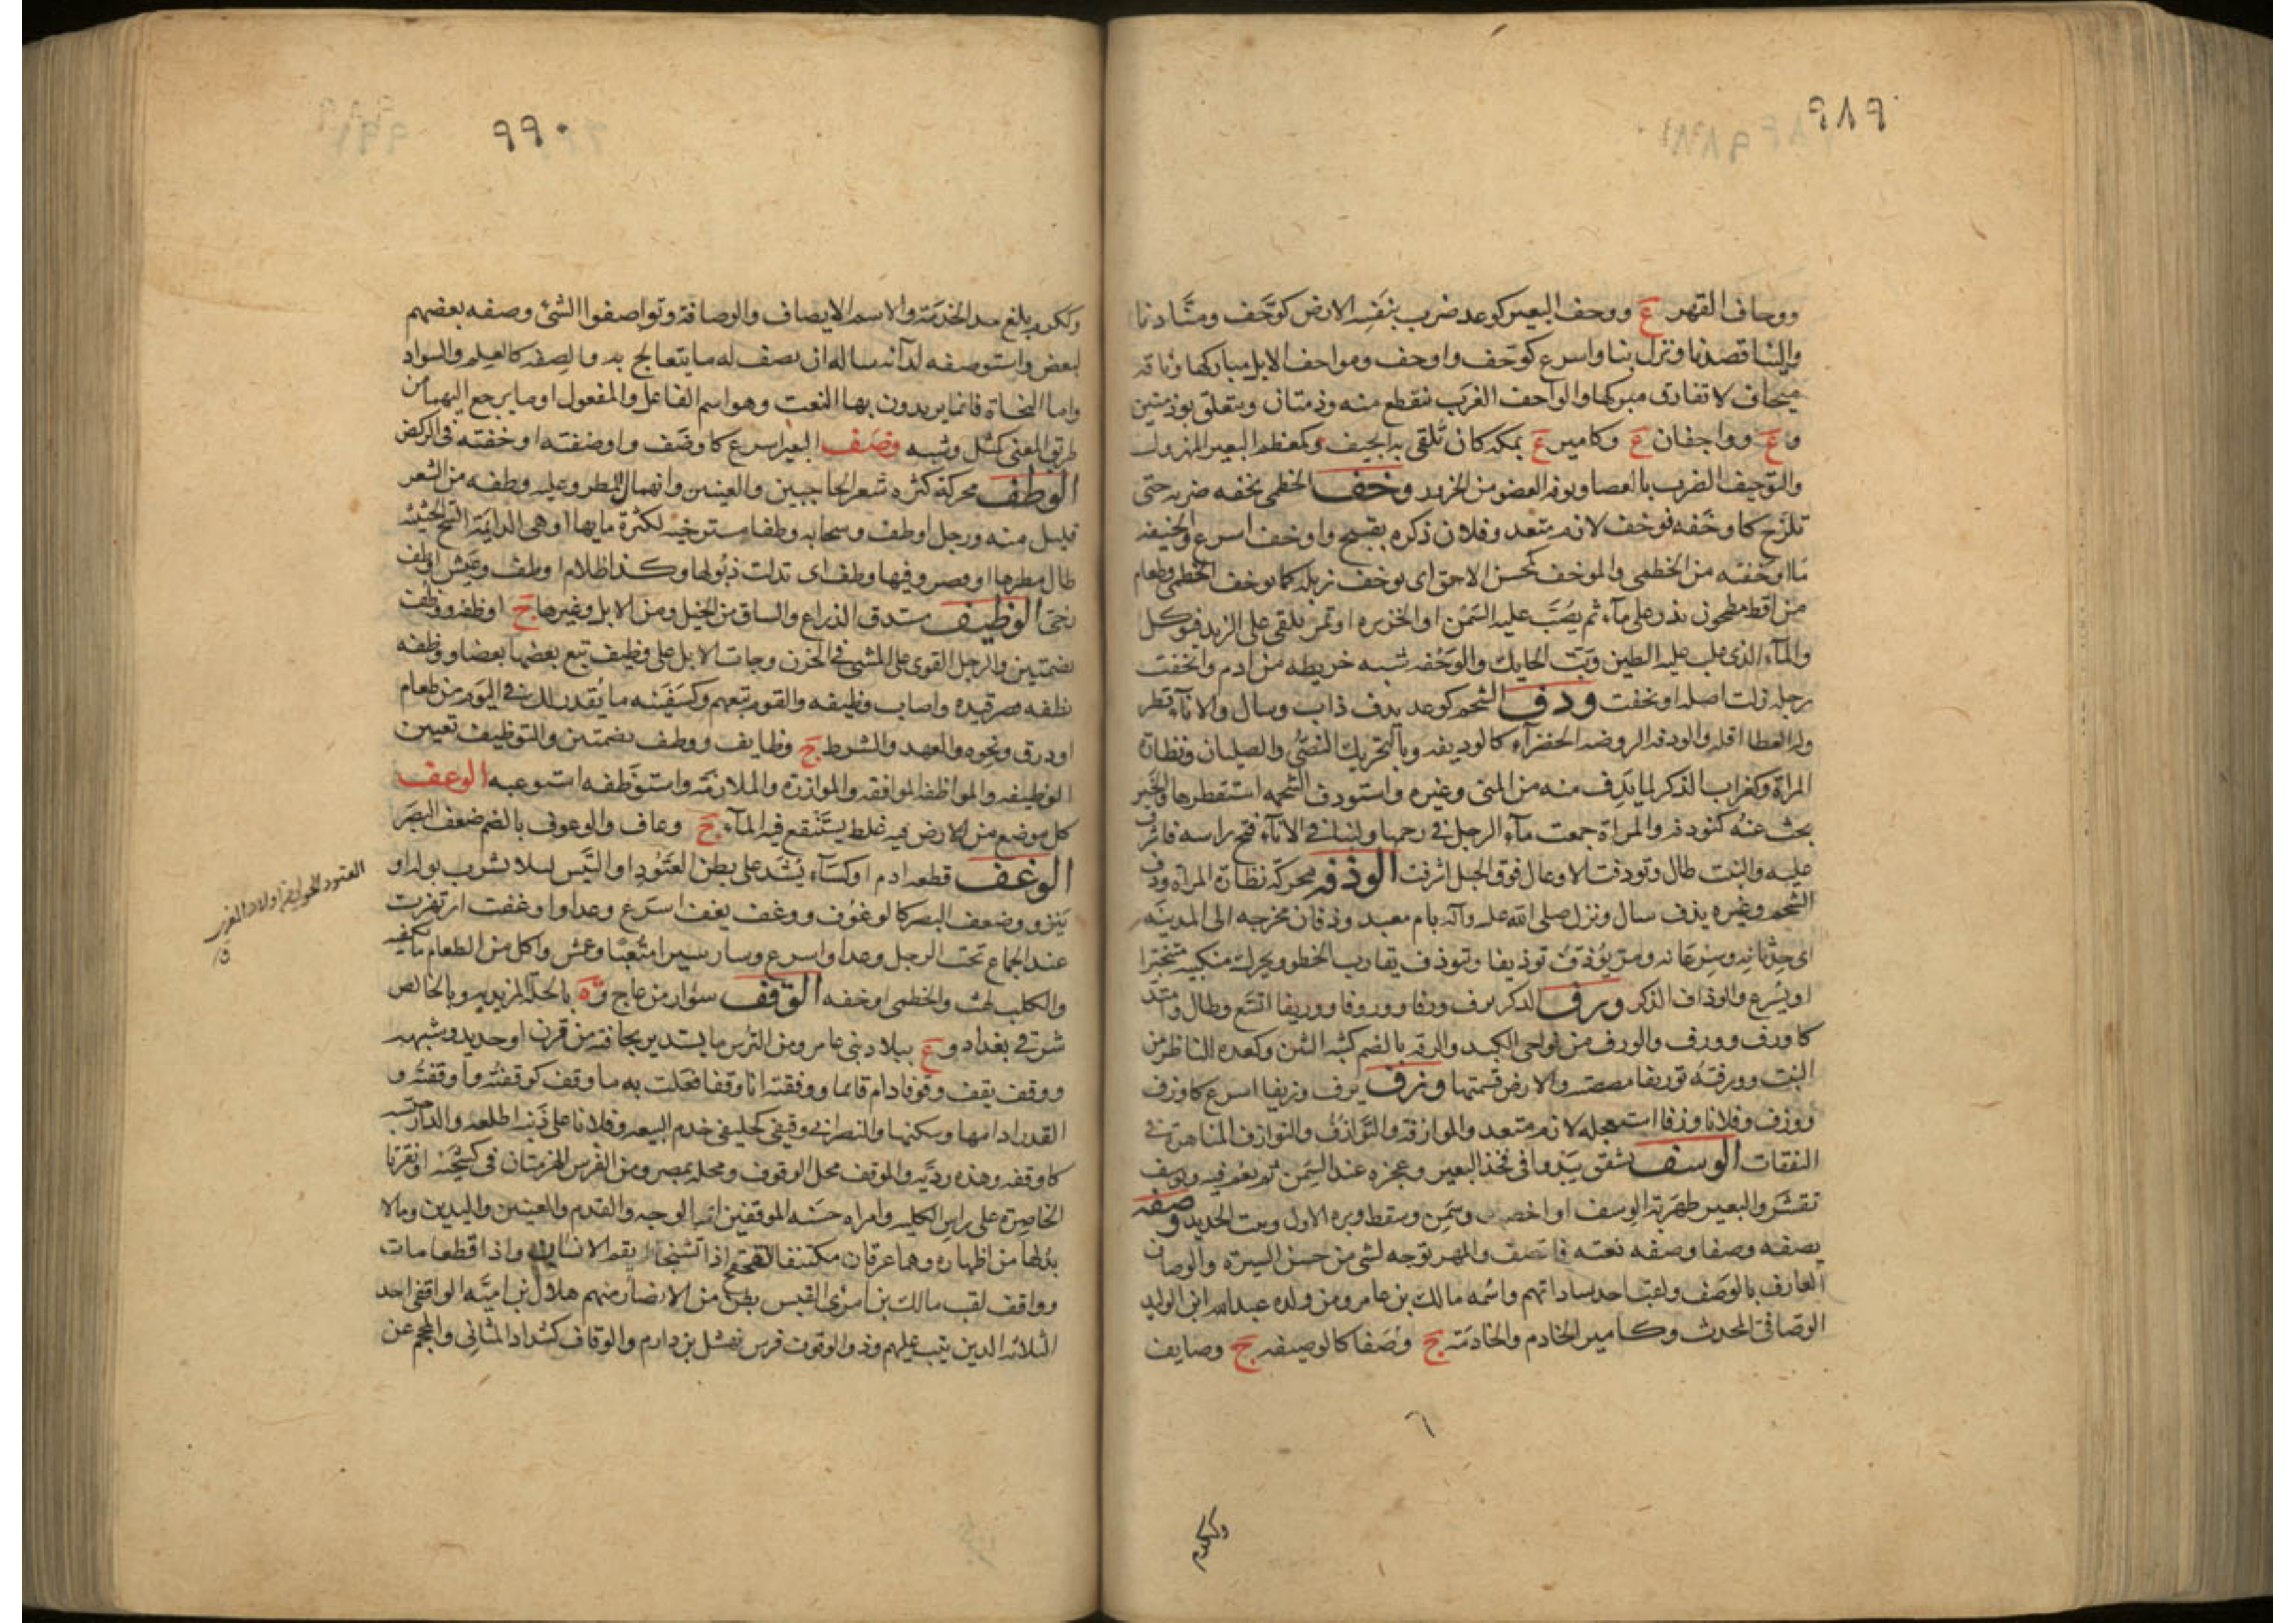 ٩٨٩
ووحاف القهر ع ووحف البعير كوعد ضرب بنفسه الارض كوحف ومنا دنا
والينا قصدنا ونزل بنا واسرع كوحف واوحف ومواحف الابل مباركها وناقه
ميحاف لا تفارق مبركها والواحف الغرب ينقطع منه وذمتان ويتعلق بوذمتين
و ع وواحفان ع وكامير ع بمكه كان تلقى به الجيف وكمعظم البعير المهزول
والتوحيف الضرب بالعصا وتوفر العضو من الجزور وخف الخطمى يخفه ضربه حتى
تلزج كاوخفه فوخف لازم متعد وفلان ذكره بقبيح واوخف اسرع والوخيفه
ما اوخفته من الخطمى والموخف كمحسن الاحمق اى يوخف زبله كما يوخف الخطمى وطعام
من اقط مطحون يذر على ماء ثم يصب عليه السمن او الخزيره او تمر يلقى على الزبد فيؤكل
والماء الذى غلب عليه الطين وبت الحايك والوخفه شبه خريطه من ادم واتخفت
رجله زلت اصله اوتخفت ودف الشحم كوعد يدف ذاب وسال والاناء قطر
وله العطا اقله والودفه الروضه الخضراء كالوديفه وبالتحريك النصى والصليان وبظاره
المراة وكغراب الذكر لما يدف منه من المنى وغيره واستودف الشحمه استقطرها والخبر
بحث عنه كتودفه والمراة جمعت ماء الرجل فى رحمها ولبنا فى الاناء فتح راسه فاشرف
عليه والنبت طال وتودفت الاوعال فوق الجبل اشرفت الوذفه محركة بظارة المراة ووذف
الشحم وغيره يذف سال ونزل صلى الله عليه وآله بام معبد وذفان مخرجه الى المدينه
اى حدثانه وسرعانه ومر يوذف توذيفا وتوذف يقارب الخطو ويحرك منكبيه متبخترا
او يسرع والوذاف الذكر ورف الدكر يرف ورفا ووروفا ووريفا اتسع وطال وامتد
كاورف وورف والورف من نواحى الكبد والرفه بالضم كثبه التبن وكعده الناظر من
النبت وورفته توريفا مصصته والارض قسمتها وزف يزف وزيفا اسرع كاوزف
ووزف وفلانا وزفا استعجله لازم متعد والموازفه والتوازف والتوازف المناهدة فى
النفقات الوسف تشقق يبدو فى فخذ البعير وعجزه عند السمن ثم يعم فيه وتوسف
تقشر والبعير ظهر به الوسف او اخصب وسمن وسقط وبره الاول ونبت الجديد وصفه
يصفه وصفا وصفه نعته فاتصف والمهر توجه لشى من حسن السيرة والوصاف
العارف بالوصف ولقب احد ساداتهم واسمه مالك بن عامر ومن ولده عبدالله ابن الوليد
الوصافى المحدث وكامير الخادم والخادمة ج وصفا كالوصيفه ج وصايف
وككرم
٩٩٠
وككرم بلغ حد الخدمة والاسم الايصاف والوصافة وتواصفوا الشئ وصفه بعضهم
لبعض واستوصفه لدائه ساله ان يصف له ما يتعالج به والصفه كالعلم والسواد
واما النحاة فانما يريدون بها النعت وهو اسم الفاعل والمفعول او ما يرجع اليهما من
طريق المعنى كمثل وشبه وضف البعير اسرع كاوضف واوضفته اوخفته فى الركض
الوطف محركة كثره شعر الحاجبين والعينين وانهمال المطر وعليه وطفه من الشعر
قليل منه ورجل اوطف وسحابه وطفا مسترخيه لكثرة مايها او هى الدايمة السح الحثيثه
طال مطرها او قصر وفيها وطف اى تدلت ذيولها وكذا ظلام اوطف وعيش اوطف
رخى الوظيف مستدق الذراع والساق من الخيل ومن الابل وغيرها ج اوظفه ووظف
بضمتين والرجل القوى على المشى فى الحزن وجات الابل على وظيف تبع بعضها بعضا ووظفه
يظفه قصر قيده واصاب وظيفه والقوم تبعهم وكسفينه ما يقدر لك فى اليوم من طعام
اورزق ونحوه والعهد والشرط ج وظايف ووظف بضمتين والتوظيف تعيين
الوظيفه والمواظفه الموافقه والموازرة والملازمة واستوظفه استوعبه الوعف
كل موضع من الارض فيه غلظ يستنقع فيه الماء ج وعاف والوعوف بالضم ضعف البصر
الوغف قطعه ادم او كساء يشد على بطن العتود او التيس ليلا يشرب بوله او
ينزو وضعف البصر كالوغوف ووغف يغف اسرع وعدا واوغفت ارتهزت
عند الجماع تحت الرجل وعدا واسرع وسار سيرا متعبا وعمش واكل من الطعام ما يكفيه
والكلب لهث والخطمى اوخفه الوقف سوار من عاج وة بالحلة المزيديه وبالخالص
شرقى بغداد و ع ببلاد بنى عامر ومن الترس ما يستدير بحافته من قرن او حديد وشبهه
ووقف يقف وقوفا دام قايما ووقفته انا وقفا فعلت به ما وقف كوقفته واوقفته و
القدر ادامها وسكنها والنصرانى وقيفى كخليفى خدم البيعه وفلانا على ذنبه اطلعه والدار حبسه
كاوقفه وهذه رديه والموقف محل الوقوف ومحله بمصر ومن الفرس الهزمتان فى كشحيه او نقرتا
الخاصرة على راس الكليه وامراه حسنه الموقفين اى الوجه والقدم والعينين واليدين وما لا
بد لها من اظهاره وهما عرقان مكتنفا القحقح اذا تشنجا لم يقم الانسان واذا قطعا مات
وواقف لقب مالك بن امرئ القيس بطن من الانصار منهم هلال بن امية الواقفى احد
الثلاثه الدين تيب عليهم وذو الوقوف فرس نهشل بن دارم والوقاف كشداد المتانى والمحجم عن
العتود الحولى من اولاد المعز